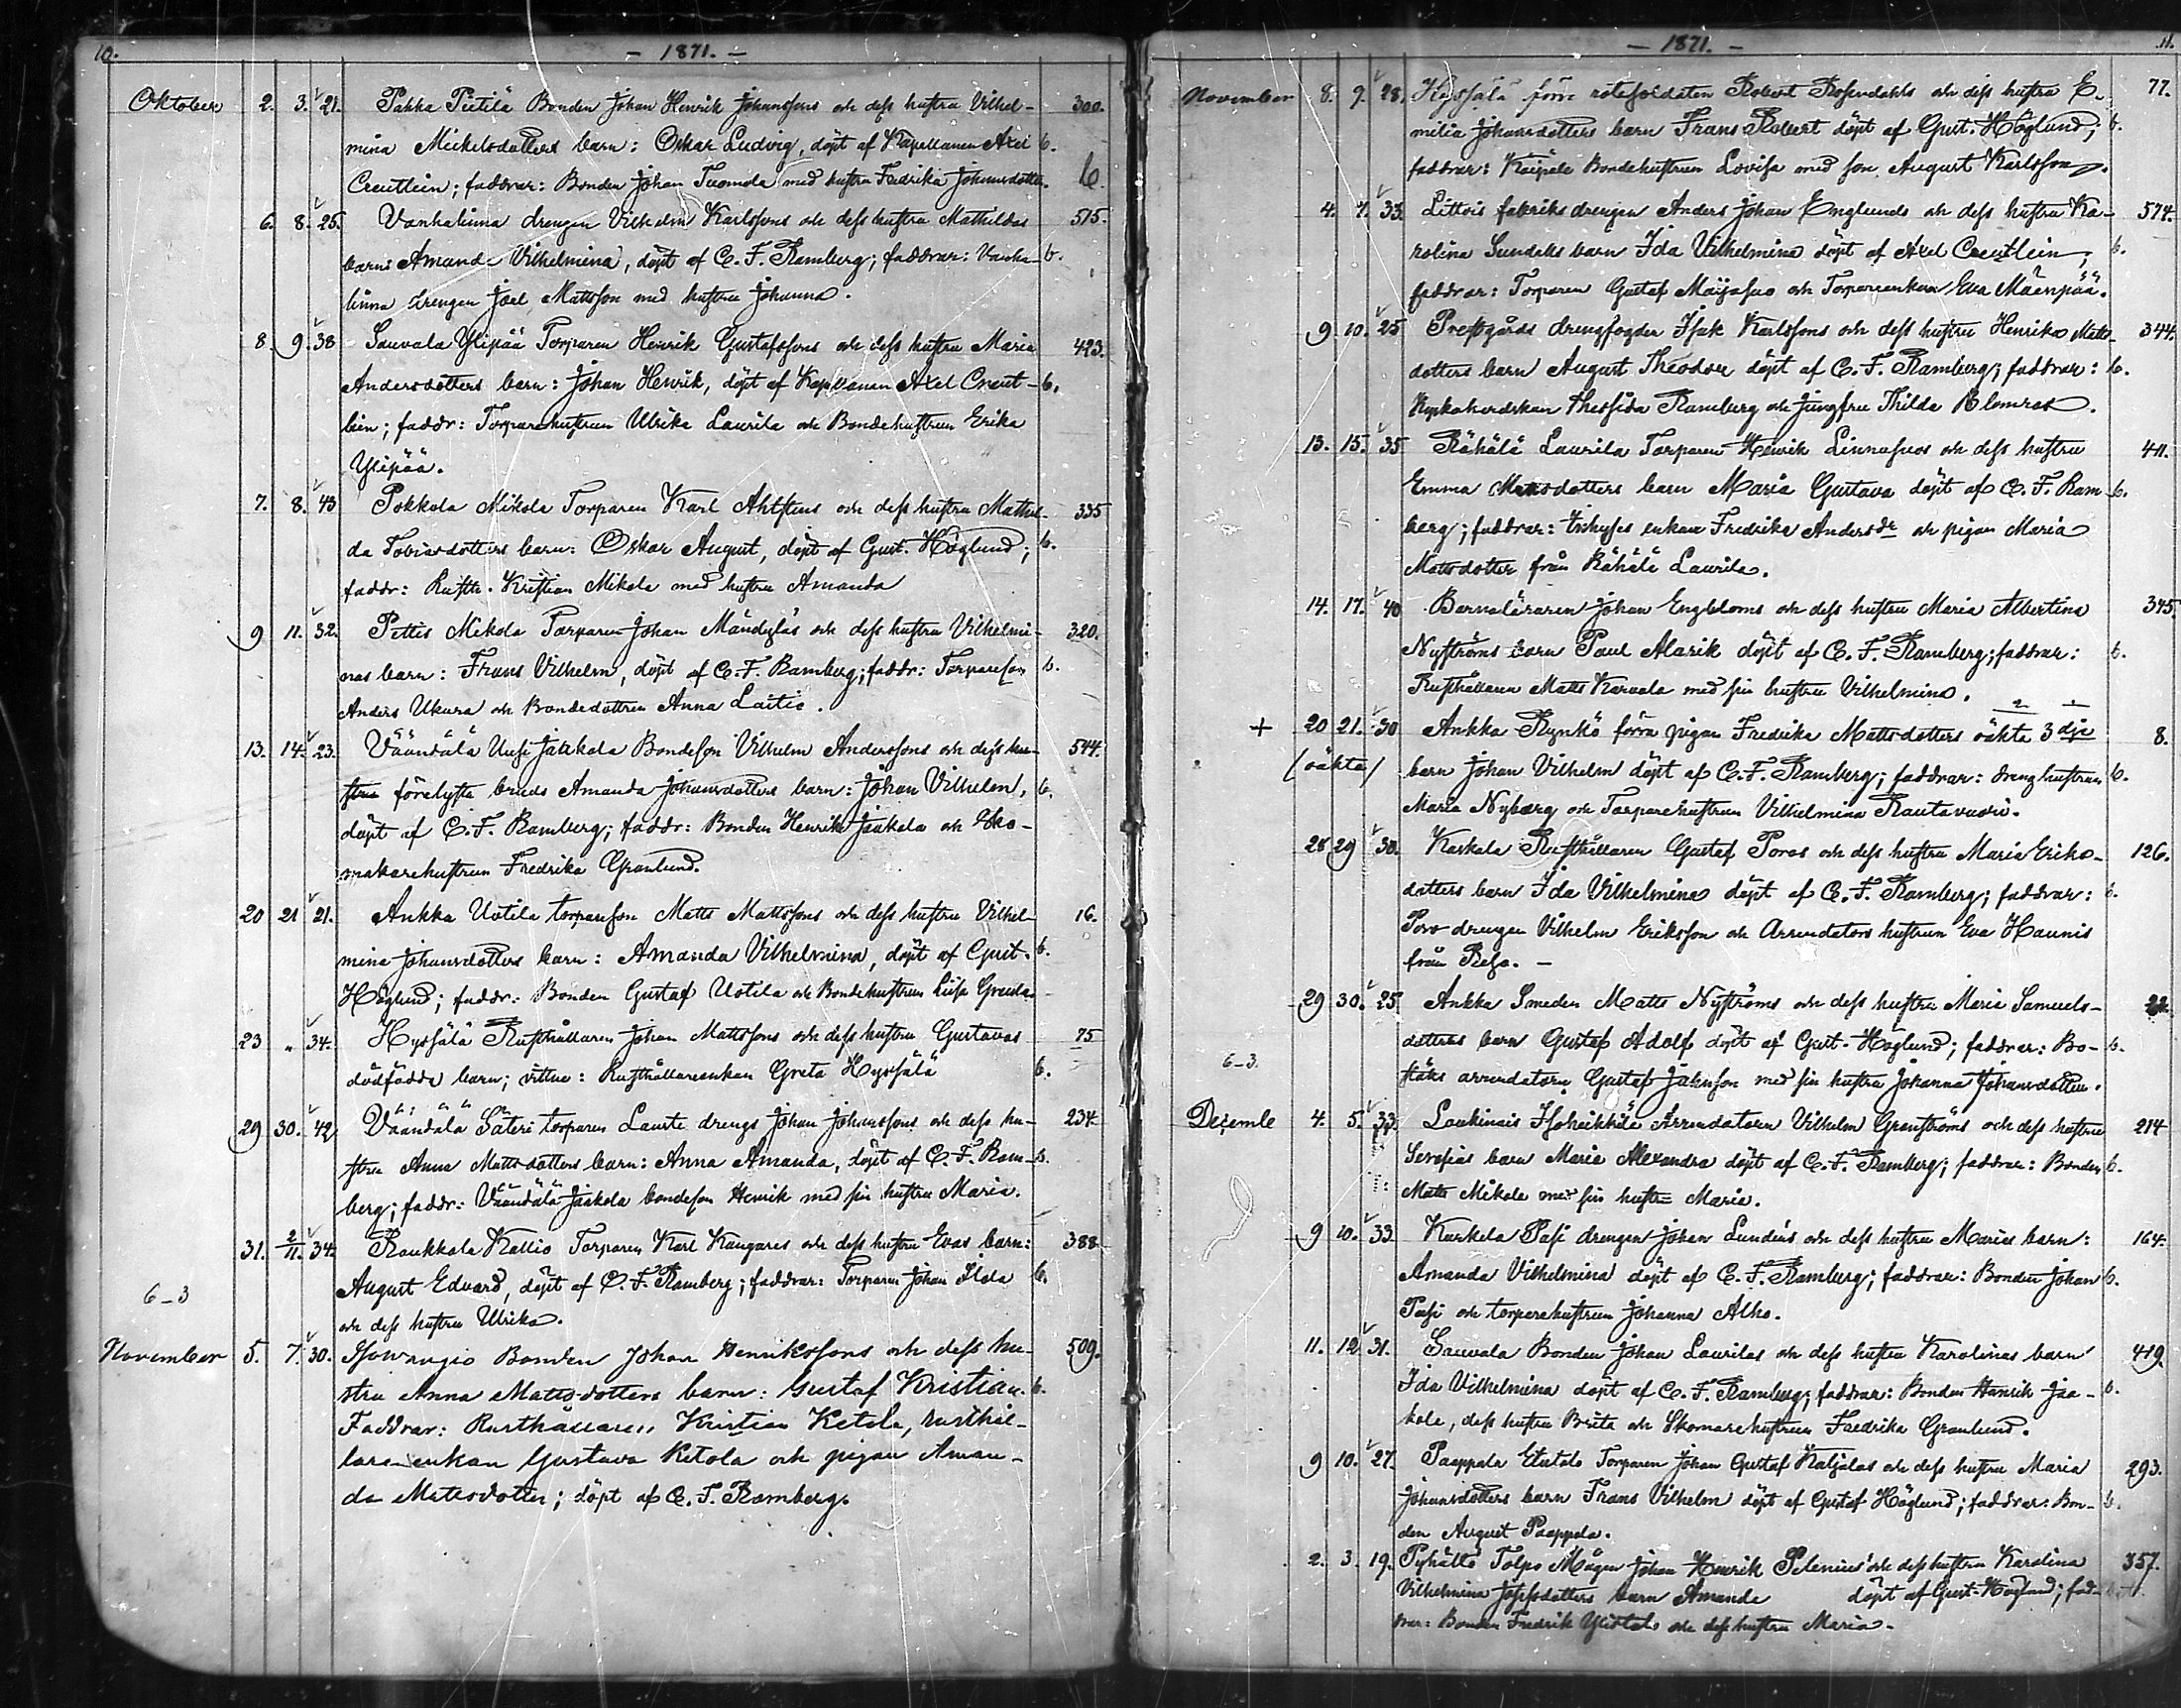 10.
- 1871. -
Oktober 2. 3. 21. Pakka Pietilä Bonden Johan Henrik Johanssons och dess hustru Vilhel- 300.
mina Mickelsdotters barn: Oskar Ludvig, döpt af Kapellanen Axel b.
Creutlein; faddrar: Bonden Johan Tuomola med hustru Fredrika Johansdotter. b.
6. 8. 25. Vanhalinna drengen Vilhelm Karlssons och dess hustru Mathildas 515.
barn: Amanda Vilhelmina, döpt af C. F. Ramberg; faddrar: Vanha- b.
linna drengen Joel Mattsson med hustru Johanna.
8 9. 38 Sauvala Ylipää Torparen Henrik Gustafssons och dess hustru Maria 423.
Andersdotters barn: Johan Henrik, döpt af Kapellanen Axel Creut- b.
lein; faddr: Torparehustrun Ulrika Laurila och Bondehustrun Erika
Ylipää.
7. 8. 43 Pokkola Mikola Torparen Karl Ahlstens och dess hustru Mathil- 335
da Tobiasdotters barn: Oskar August, döpt af Gust. Höglund; b.
faddr: Rusth. Kristian Mikola med hustru Amanda
9 11. 32. Pettis Mikola Torparen Johan Mändyläs och dess hustru Vilhelmi- 320.
nas barn: Frans Vilhelm, döpt af C. F. Ramberg; faddr: Torpareson b.
Anders Ukura och Bondedottren Anna Laitio.
13. 14. 23. Väändälä Uusi Jaakola Bondeson Vilhelm Anderssons och dess hu- 544.
stru förelyfte bruds Amanda Johansdotters barn: Johan Vilhelm, b.
döpt af C. F. Ramberg; faddr: Bonden Henrik Jaakola och Sko-
makarehustrun Fredrika Granlund.
20 21 21. Ankka Uotila torpareson Matts Mattssons och dess hustru Vilhel- 16.
mina Johansdotters barn: Amanda Vilhelmina, döpt af Gust. b.
Höglund; faddr: Bonden Gustaf Uotila och Bondehustrun Liisa
23 „ 34. Hyssälä Rusthållaren Johan Mattssons och dess hustru Gustavas 75
dödfödda barn; vittne: Rusthållareenkan Greta Hyssälä b.
29 30. 42 Väändälä Säteri torparen Lauste drengs Johan Johanssons och dess hu- 234
stru Anna Mattsdotters barn: Anna Amanda, döpt af C. F. Ram- b.
berg; faddr: Väändälä Jaakola bondeson Henrik med sin hustru Maria.
31. 2/11. 34. Raukkala Kallio Torparen Karl Kangares och dess hustru Evas barn: 388
6-3 August Edvard, döpt af C. F. Ramberg; faddrar: Torparen Johan Ilola b.
och dess hustru Ulrika.
November 5. 7. 30. Isovangio Bonden Johan Henrikssons och dess hu- 509.
stru Anna Mattsdotters barn: Gustaf Kristian. b.
Faddrar: Rusthållaren Kristian Ketola, rusthål-
lare-enkan Gustava Ketola och pigan Aman-
da Mattsdotter; döpt af C. F. Ramberg.
- 1871. -
11.
November 8. 9. 28. Hyssälä förre rotesoldaten Robert Rosendahls och dess hustru E- 77.
milia Johansdotters barn Frans Robert döpt af Gust. Höglund; b.
faddrar: Knäpälä Bondehustrun Lovisa med son August Karlsson.
4. 7. 33. Littois fabriks drengen Anders Johan Englunds och dess hustru Ka- 574.
rolina Sundells barn Ida Vilhelmina döpt af Axel Creutlein; b.
faddrar: Torparen Gustaf Maijasuo och Torpareenkan Eva Mäenpää.
9. 10. 25 Prestgårds drengfogden Isak Karlssons och dess hustru Henrika Matts- 344.
dotters barn August Theodor döpt af C. F. Ramberg; faddrar: b.
Kyrkoherdskan Ramberg och Jungfru Thilda Blomros.
13. 15. 35 Rähälä Laurila Torparen Henrik Linnasuos och dess hustru 411.
Emma Mattsdotters barn Maria Gustava döpt af C. F. Ram- b.
berg; faddrar: enkan Fredrika Andersdr och pigan Maria
Mattsdotter från Rähälä Laurila.
14. 17. 40 Barnaläraren Johan Engbloms och dess hustru Maria Albertina 345.
Nyströms barn Paul Alarik döpt af C. F. Ramberg; faddrar: b.
Rusthållaren Matts Karvala med sin hustru Vilhelmina.
+ 20 21. 30 Ankka Rynkö förra pigan Fredrika Mattsdotters oäkta 3dje 8.
/oäkta/ barn Johan Vilhelm döpt af C. F. Ramberg; faddrar: drenghustrun b.
Maria Nyberg och Torparehustrun Vilhelmina Rautavuori.
28 29 30. Kaskala Rusthållaren Gustaf Poros och dess hustru Maria Eriks- 126.
dotters barn Ida Vilhelmina döpt af C. F. Ramberg; faddrar: b.
Poro drengen Vilhelm Eriksson och Arrendators hustrun Eva Haunis
från Reso. -
29 30. 25. Ankka Smeden Matts Nyströms och dess hustru Maria Samuels- 22
dotters barn Gustaf Adolf döpt af Gust. Höglund; faddrar: Bo- b.
6-3. ställs arrendatorn Gustaf Johnson med sin hustru Johanna Johansdotter.
Decemb 4. 5. 33. Loukinais Isoheikkilä Arrendatorn Vilhelm Granströms och dess hustru 214
Serafias barn Maria Alexandra döpt af C. F. Ramberg; faddrar: Bonden b.
Matts Mikola med sin hustru Maria.
9 10. 33 Kurkela Pasi drengen Johan Lundéns och dess hustru Marias barn: 164.
Amanda Vilhelmina döpt af C. F. Ramberg; faddrar: Bonden Johan b.
Pasi och torparehustrun Johanna Alho.
11. 12 31. Sauvala Bonden Johan Laurilas och dess hustru Karolinas barn 419.
Ida Vilhelmina döpt af C. F. Ramberg; faddrar: Bonden Henrik Jaa- b.
kola, dess hustru Brita och Skomarehustrun Fredrika Granlund.
9 10. 27. Paappala Etutalo Torparen Johan Gustaf Katjalas och dess hustru Maria 293.
Johansdotters barn Frans Vilhelm döpt af Gustaf Höglund; faddrar: Bon- b.
den August Paappala.
2. 3. 19. Pyhältö Tolpo Mågen Johan Henrik Selenius och dess hustru Karolina 357.
Vilhelmina Josefsdotters barn Amanda döpt af Gust. Höglund; fad-
rar: Bonden Fredrik Ylistalo och dess hustru Maria.